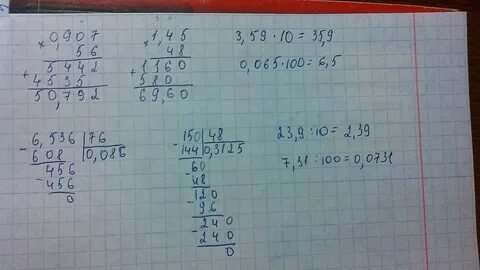 0,907
× 56
5442
+ 4535
50,792
1,45
× 48
1160
+ 580
69,60
3,59 · 10 = 35,9
0,065 · 100 = 6,5
6,536 | 76
- 608 | 0,086
456
- 456
0
150 | 48
- 144 | 0,3125
60
- 48
120
- 96
240
- 240
0
23,9 : 10 = 2,39
7,31 : 100 = 0,0731